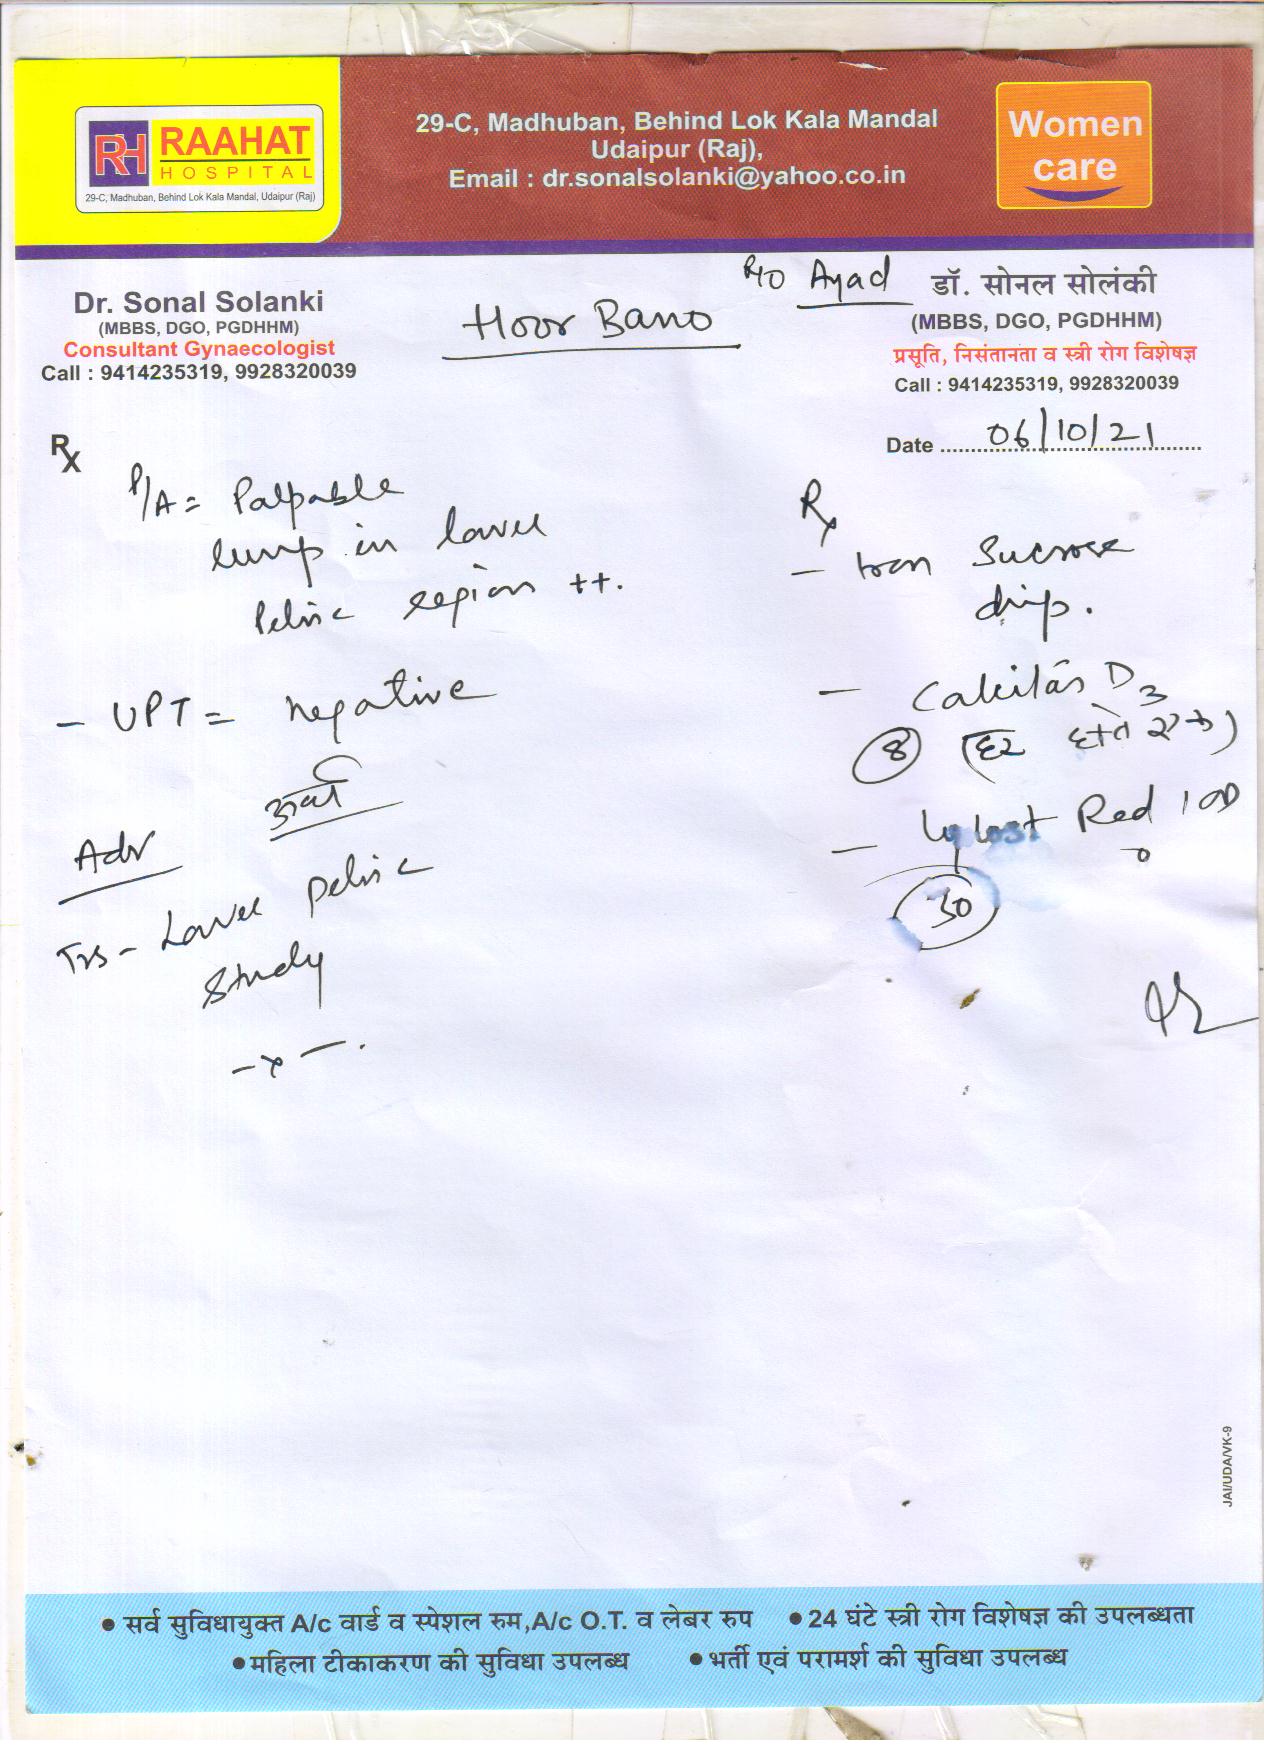 RH RAAHAT
HOSPITAL
29-C, Madhuban, Behind Lok Kala Mandal, Udaipur (Raj)
29-C, Madhuban, Behind Lok Kala Mandal
Udaipur (Raj),
Email : dr.sonalsolanki@yahoo.co.in
Women
care
Dr. Sonal Solanki
(MBBS, DGO, PGDHHM)
Consultant Gynaecologist
Call : 9414235319, 9928320039
Hoor Bano
R/O Ayad
डॉ. सोनल सोलंकी
(MBBS, DGO, PGDHHM)
प्रसूति, निसंतानता व स्त्री रोग विशेषज्ञ
Call : 9414235319, 9928320039
Date 06/10/21
Rx
P/A = Palpable
lump in lower
Pelvic region ++.
- UPT = negative
Adv
TVS - Lower pelvic
study
Rx
- Iron Sucrose
drip.
- Calcitas D3
8 (हर हफ्ते एक)
- Red 1 OD
30
JAI/UDA/VK-9
• सर्व सुविधायुक्त A/c वार्ड व स्पेशल रुम,A/c O.T. व लेबर रुप • 24 घंटे स्त्री रोग विशेषज्ञ की उपलब्धता
• महिला टीकाकरण की सुविधा उपलब्ध • भर्ती एवं परामर्श की सुविधा उपलब्ध